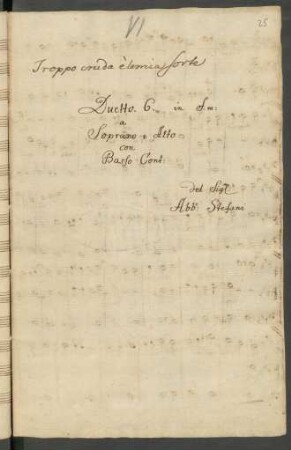 VI
25
Troppo cruda è la mia sorte
Duetto. 6. in
a
Soprano e Alto
con
Basso Cont:
del Sigr
Abb. Stefani